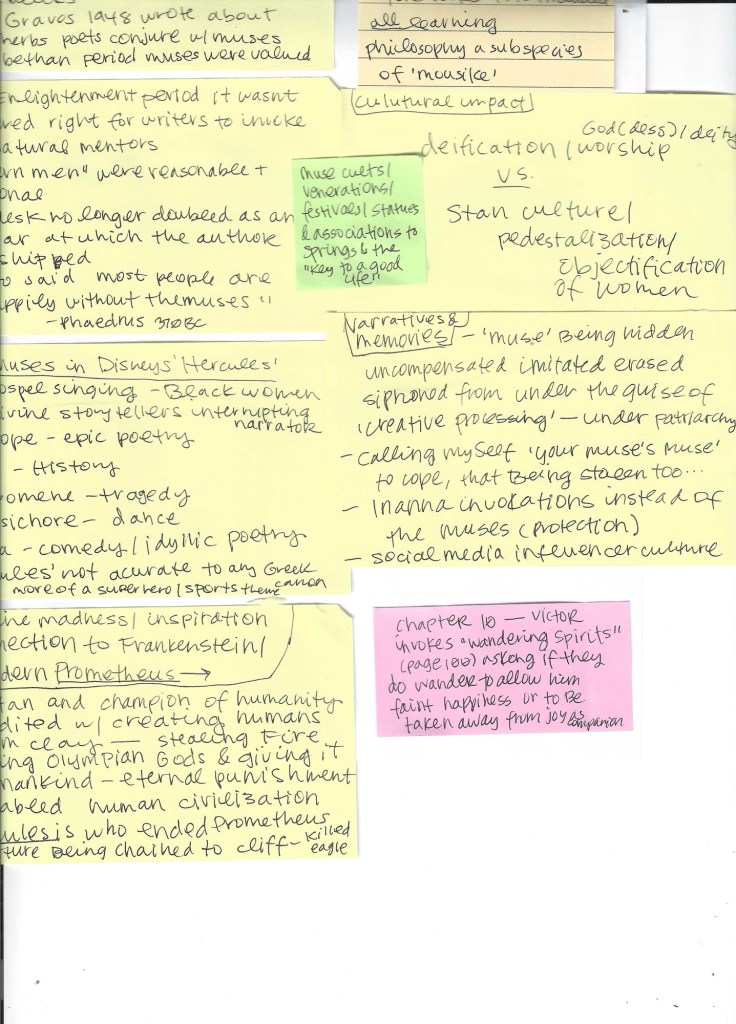 Graves 1948 wrote about
herbs poets conjure w/ muses
bethan period muses were valued
all learning
philosophy a subspecies
of 'mousike'
Enlightenment period it wasnt
red right for writers to invoke
atural mentors
rn men" were reasonable +
onal
esk no longer doubled as an
ar at which the author
shipped
o said most people are
ppily without the muses "
- phaedrus 370 BC
culutural impact
God(dess)/deity
deification/worship
vs.
Stan culture/
pedestalization/
objectification
of women
muse cults/
venerations/
festivals/statues
& associations to
springs & the
"key to a good
life"
Muses in Disneys 'Hercules'
ospel singing - Black women
ivine storytellers interrupting
narrator
ope - epic poetry
- History
omene - tragedy
sichore - dance
a - comedy/idyllic poetry
ules' not acurate to any Greek
canon
more of a superhero/sports theme
Narratives &
memories - 'muse' Being hidden
uncompensated imitated erased
siphoned from under the guise of
'creative processing' - under patriarchy
- calling myself 'your muse's muse'
to cope, that Being stolen too...
- Inanna invocations instead of
the muses (protection)
- social media influencer culture
ine madness/inspiration
nection to Frankenstein/
dern Prometheus →
tan and champion of humanity
dited w/ creating humans
m clay - stealing Fire
ing Olympian Gods & giving it
mankind - eternal punishment
abled human civilization
ules is who ended Prometheus
ture Being chained to cliff - killed
eagle
Chapter 10 - Victor
invokes "wandering spirits"
(page 100) asking if they
do wander to allow him
faint happiness or to Be
taken away from joy as companion